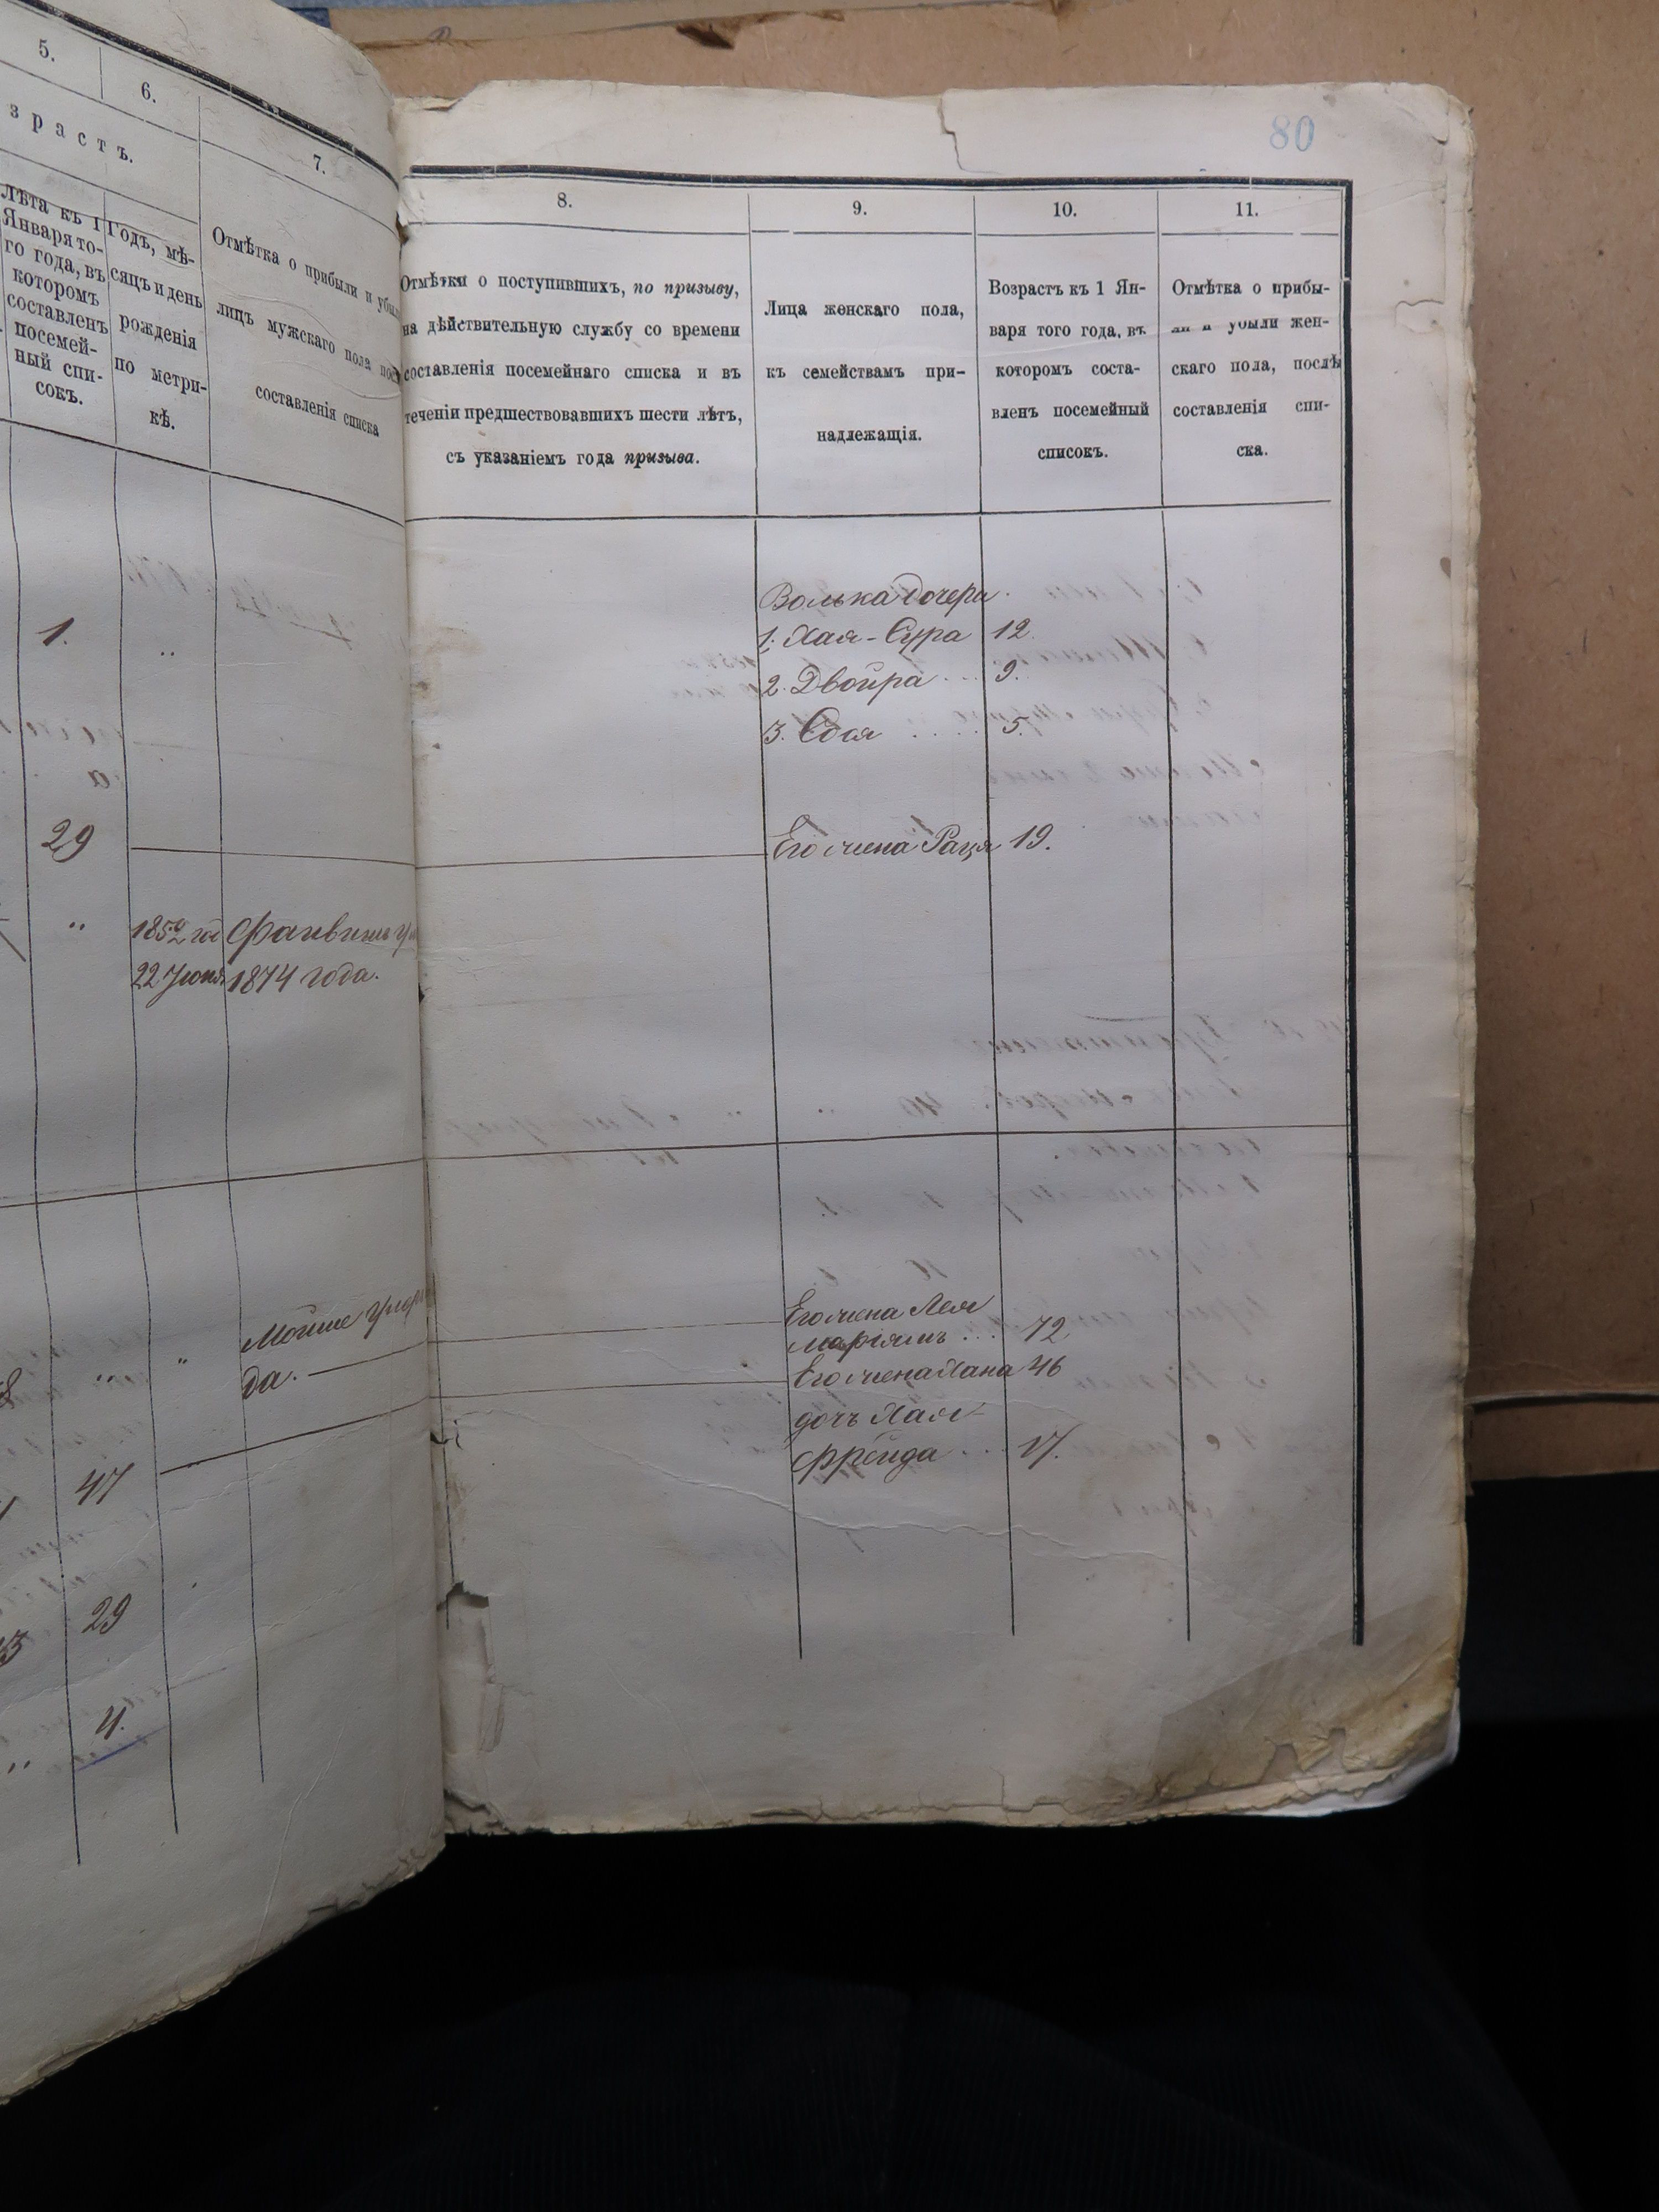 5.
6.
7.
зрастъ.
Лѣта къ 1
Января то-
го года, въ
которомъ
составленъ
посемей-
ный спи-
сокъ.
Годъ, мѣ-
сяцъ и день
рожденія
по метри-
кѣ.
Отмѣтка о прибыли и
лицъ мужскаго пола
составленія списка
1.
29
1852 год
22 Іюня
1874 года.
Мойше
да.
47
29
4.
80
8.
9.
10.
11.
Отмѣтки о поступившихъ, по призыву,
на дѣйствительную службу со времени
составленія посемейнаго списка и въ
теченіи предшествовавшихъ шести лѣтъ,
съ указаніемъ года призыва.
Лица женскаго пола,
къ семействамъ при-
надлежащія.
Возрастъ къ 1 Ян-
варя того года, въ
которомъ соста-
вленъ посемейный
списокъ.
Отмѣтка о прибы-
ли и убыли жен-
скаго пола, послѣ
составленія спи-
ска.
Волька дочери
1. Хая-Сура 12.
2. Двойра 9.
3. Едля 5.
Его жена Раця 19.
Его жена Лея
Маріямъ 72.
Его жена Хана 46
дочь Хая-
Фрейда 17.